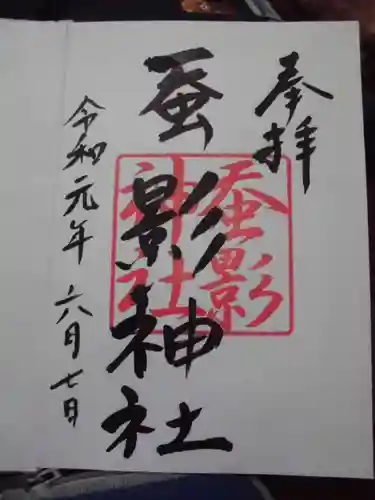 奉拝
蚕影神社
蚕影
神社
令和元年 六月七日